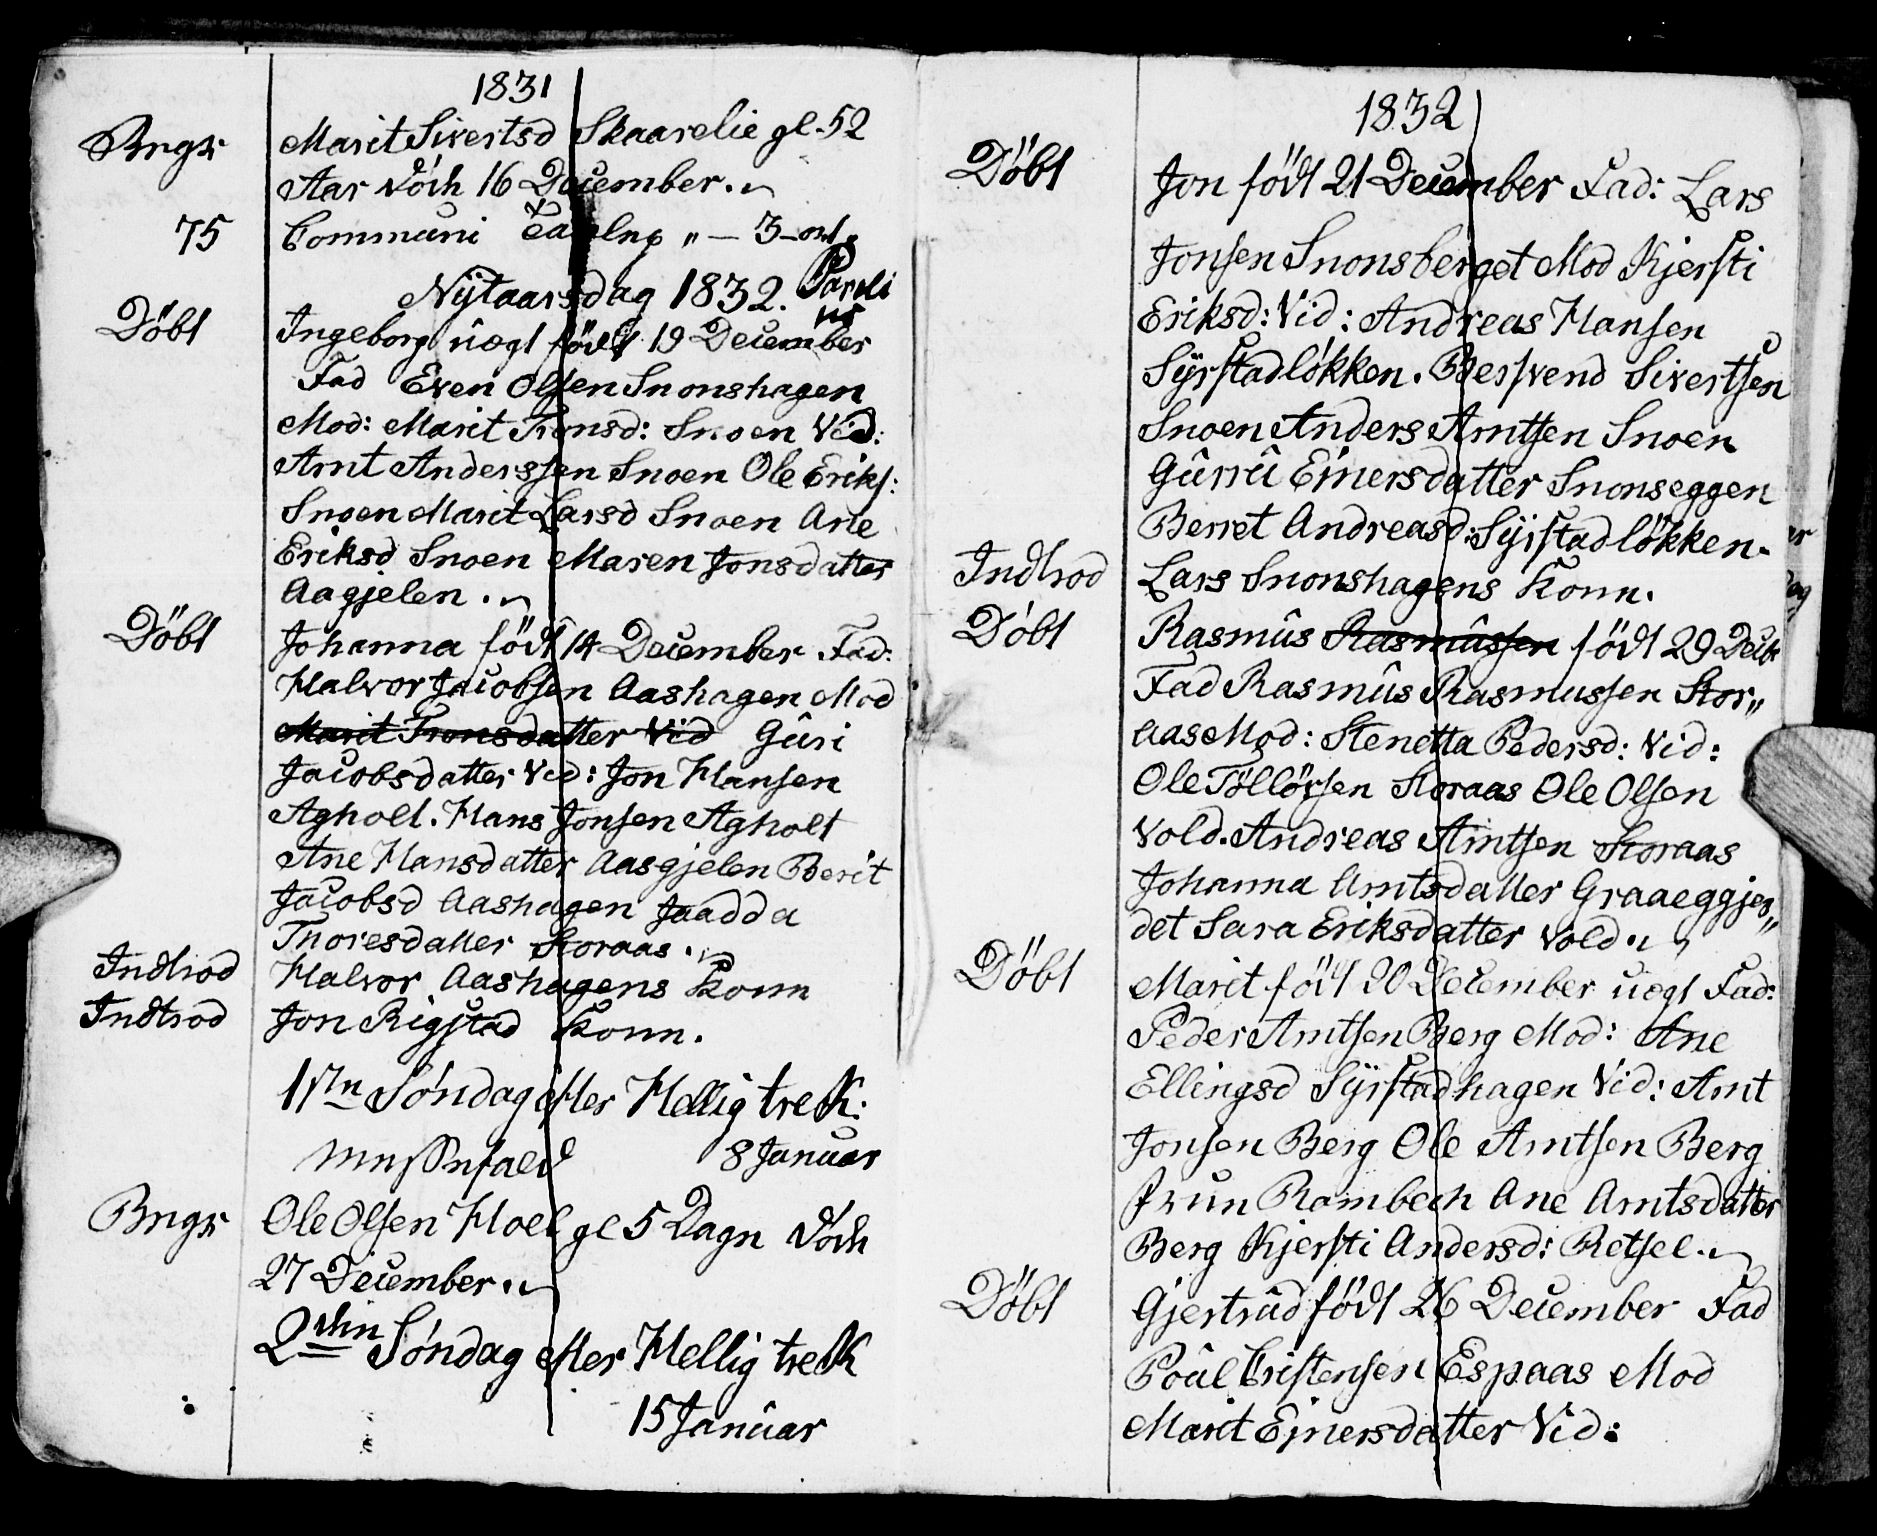 1831
Bngr Marit Sivertsd Skaarelie gl. 52
Aar död 16 December.
75 Communi Tavlnp „ — 3 - ort
Nÿtaarsdag 1832.
Döbt Ingeborg üægt födt 19 December
Fad Even Olsen Snonshagen
Mod: Marit Tronsd: Snoen Vid:
Arnt Anderssen Snoen Ole Eriks:
Snoen Marit Larsd Snoen Ane
Eriksd Snoen Maren Jonsdatter
Aagjelen.
Döbt Johanna födt 14 December Fad:
Halvor Jacobsen Aashagen Mod
Marit Tronsdatter Vid Gûri
Jacobsdatter Vid: Jon Hansen
Agholt. Hans Jonsen Agholt
Ane Hansdatter Aasgjelen Berit
Jacobsd Aashagen Jaadda
Thoresdatter Storaas.
Indtrod Halvor Aashagens Konn
Indtrod Jon Rigstad Konn.
1ste Söndag efter Hellig tre K:
Messefald 8 Januar
Bngr Ole Olsen Hoel gl 5 Dagn död
27 December.
2den Söndag efter Hellig tre K
15 Janûar
1832
Döbt Jon födt 21 December Fad: Lars
Jonsen Snonsberget Mod Kjersti
Eriksd: Vid: Andreas Hansen
Sÿrstadlökken. Besvend Sivertsen
Snoen Anders Arntsen Snoen
Gûrrû Einersdatter Snonseggen
Berret Andreasd: Sÿrstadlökken.
Indtrod Lars Snonshagens Konn.
Döbt Rasmûs Rasmûssen födt 29 Decbr
Fad Rasmûs Rasmussen Stor„
aas Mod: Stenetta Pedersd: Vid:
Ole Töllövsen Storaas Ole Olsen
Vold. Andreas Arntsen Storaas
Johanna Arntsdatter Graaeggjer„
det Sara Eriksdatter Vold.
Döbt Marit födt 20 December uægt Fad:
Peder Arntsen Berg Mod: Ane
Ellingsd Sÿrstadhagen Vid: Arnt
Jonsen Berg Ole Arntsen Berg
Frun Rambech Ane Arntsdatter
Berg Kjersti Andersd: Retsel.
Döbt Gjertrûd födt 26 December Fad
Poûl Cristensen Espaas Mod
Marit Einersdatter Vid: